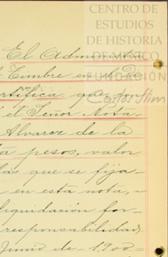 CENTRO DE
ESTUDIOS
DE HISTORIA
DE MÉXICO
FUNDACIÓN
Carlos Slim
El Administ
Timbre en
ertifica que
el Señor Nota
Alvarez de la
a pesos, valor
las que se fija
en esta nota,
liquidación for
responsabilidad
Junio de 1900